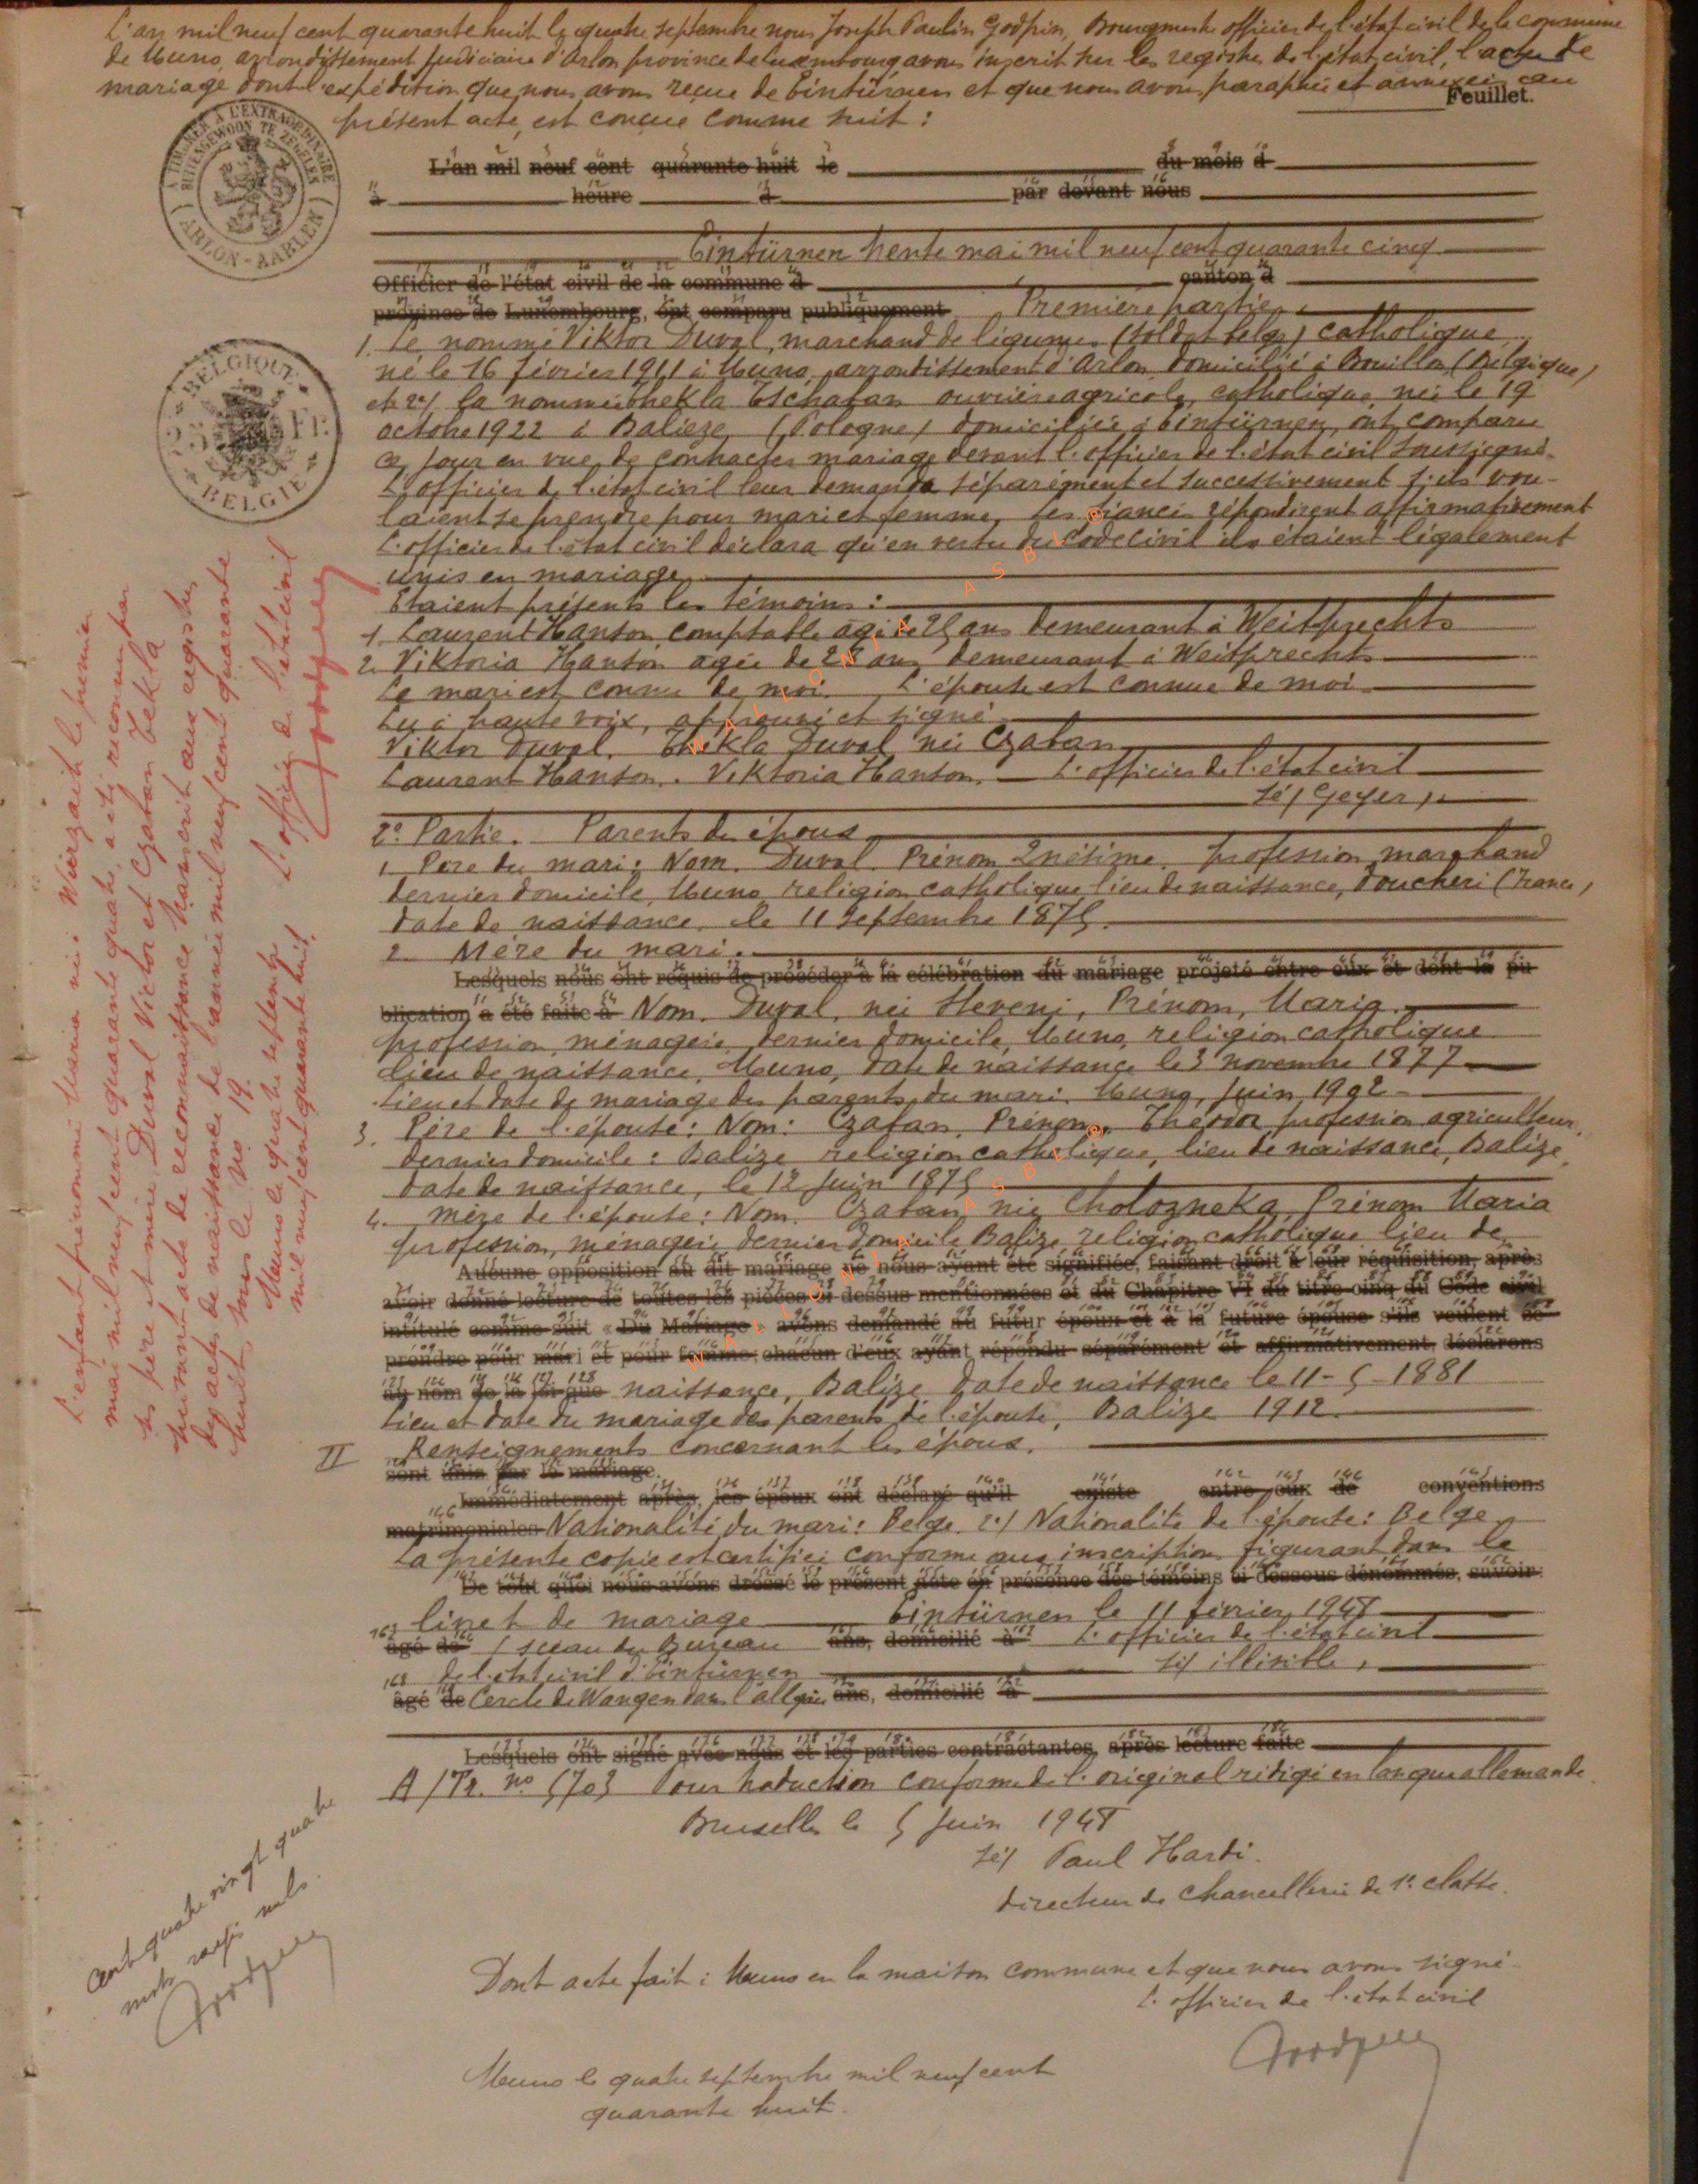 L'an mil neuf cent quarante huit le quatre septembre nous Joseph Paulin Godfrin, Bourgmestre officier de l'état civil de la commune
de Muno, arrondissement judiciaire d'Arlon province de Luxembourg avons inscrit sur les registres de l'état civil, l'acte de
mariage dont l'expédition que nous avons reçue de Eintürnen et que nous avons paraphée et annexée au
Feuillet.
présent acte, est conçue comme suit :
A TIMBRER A L'EXTRAORDINAIRE
BUITENGEWOON TE ZEGELEN
ARLON - AARLEN
L'an mil neuf cent quarante huit le du mois d
à heure à par devant nous
Eintürnen trente mai mil neuf cent quarante cinq
Officier de l'état civil de la commune d canton d
province de Luxembourg, ont comparu publiquement Première partie
1. Le nommé Viktor Duval, marchand de légumes (soldat belge) catholique
né le 16 février 1911 à Muno, arrondissement d'Arlon domicilié à Bouillon (Belgique)
et 2/ la nommée Thekla Tschaban ouvrière agricole, catholique, née le 19
octobre 1922 à Balieze, (Pologne) domiciliée à Eintürnen, ont comparu
ce jour en vue de contracter mariage devant l'officier de l'état civil soussigné.
L'officier de l'état civil leur demanda séparément et successivement s'ils vou-
laient se prendre pour mari et femme, les fiancés répondirent affirmativement
L'officier de l'état civil déclara qu'en vertu du Code civil ils étaient légalement
unis en mariage
BELGIQUE
FR.
BELGIE
Etaient présents les témoins :
1. Laurent Hanson, comptable âgé de 25 ans demeurant à Weitprechts
2. Viktoria Hanson âgée de ans, demeurant à Weitprechts
Le mari est connu de moi. L'épouse est connue de moi
Lu à haute voix, approuvé et signé
Viktor Duval. Thekla Duval née Czaban
Laurent Hanson. Viktoria Hanson. L'officier de l'état civil
sé/ Geyer
2e Partie. Parents des époux
1 Père du mari : Nom. Duval. Prénom Onésime. profession, marchand
dernier domicile, Muno, religion catholique lieu de naissance, doucheri (France)
date de naissance, le 11 septembre 1875.
2 Mère du mari.
Lesquels nous ont requis de procéder à la célébration du mariage projeté entre eux et dont la pu
blication a été faite à Nom. Duval, née Heveni, Prénom, Maria.
profession, ménagère, dernier domicile, Muno, religion catholique
lieu de naissance, Muno, date de naissance le 3 novembre 1877
Lieu et date de mariage des parents du mari. Muno, juin 1902
3. Père de l'épouse : Nom : Czaban. Prénom. Théodor profession agriculteur,
dernier domicile : Balize religion catholique, lieu de naissance, Balize,
date de naissance, le 12 juin 1875
4. mère de l'épouse : Nom. Czaban, née Cholozneka, Prénom Maria
profession, ménagère dernier domicile Balize religion catholique lieu de
Aucune opposition au dit mariage ne nous ayant été signifiée, faisant droit à leur réquisition, après
avoir donné lecture de toutes les pièces ci dessus mentionnées et du Chapitre VI du titre cinq du Code civil
intitulé comme suit « Du Mariage » avons demandé au futur époux et à la future épouse s'ils veulent se
prendre pour mari et pour femme ; chacun d'eux ayant répondu séparément et affirmativement, déclarons
au nom de la loi que naissance, Balize date de naissance le 11-5-1881
Lieu et date du mariage des parents de l'épouse, Balize 1912.
II Renseignements concernant les époux.
sont unis par le mariage.
Immédiatement après, les époux ont déclaré qu'il existe entre eux de conventions
matrimoniales Nationalité du mari : Belge. 2°/ Nationalité de l'épouse : Belge
La présente copie est certifiée conforme aux inscriptions figurant dans le
De tout quoi nous avons dressé le présent acte en présence des témoins ci dessous dénommés, savoir :
livret de mariage Eintürnen le 11 février 1948
âgé de (sceau du Bureau ans, domicilié à L'officier de l'état civil
de l'état civil d'Eintürnen sé/ illisible,
âgé de Cercle de Wangen dans l'allgäu ans, domicilié à
Lesquels ont signé avec nous et les parties contractantes, après lecture faite
A/Tr. no 5703 Pour traduction conforme de l'original rédigé en langue allemande.
Bruxelles le 5 juin 1948
sé/ Paul Hardi.
directeur de Chancellerie de 1e classe.
Dont acte fait à Muno en la maison commune et que nous avons signé
L'officier de l'état civil
Muno le quatre septembre mil neuf cent
quarante huit.
L'enfant prénommé Maria née à Würzach le premier
mai mil neuf cent quarante quatre, a été reconnu par
ses père et mère, Duval Victor et Czaban Tekla
suivant acte de reconnaissance transcrit aux registres
des actes de naissance de l'année mil neuf cent quarante
huit, sous le no 19.
Muno le quatre septembre
mil neuf cent quarante huit.
L'officier de l'état civil
Cent quatre vingt quatre
mots rayés nuls.
WALLONIA ASBL ©
WALLONIA ASBL ©